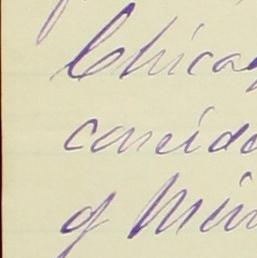 Chicag
conside
of Min